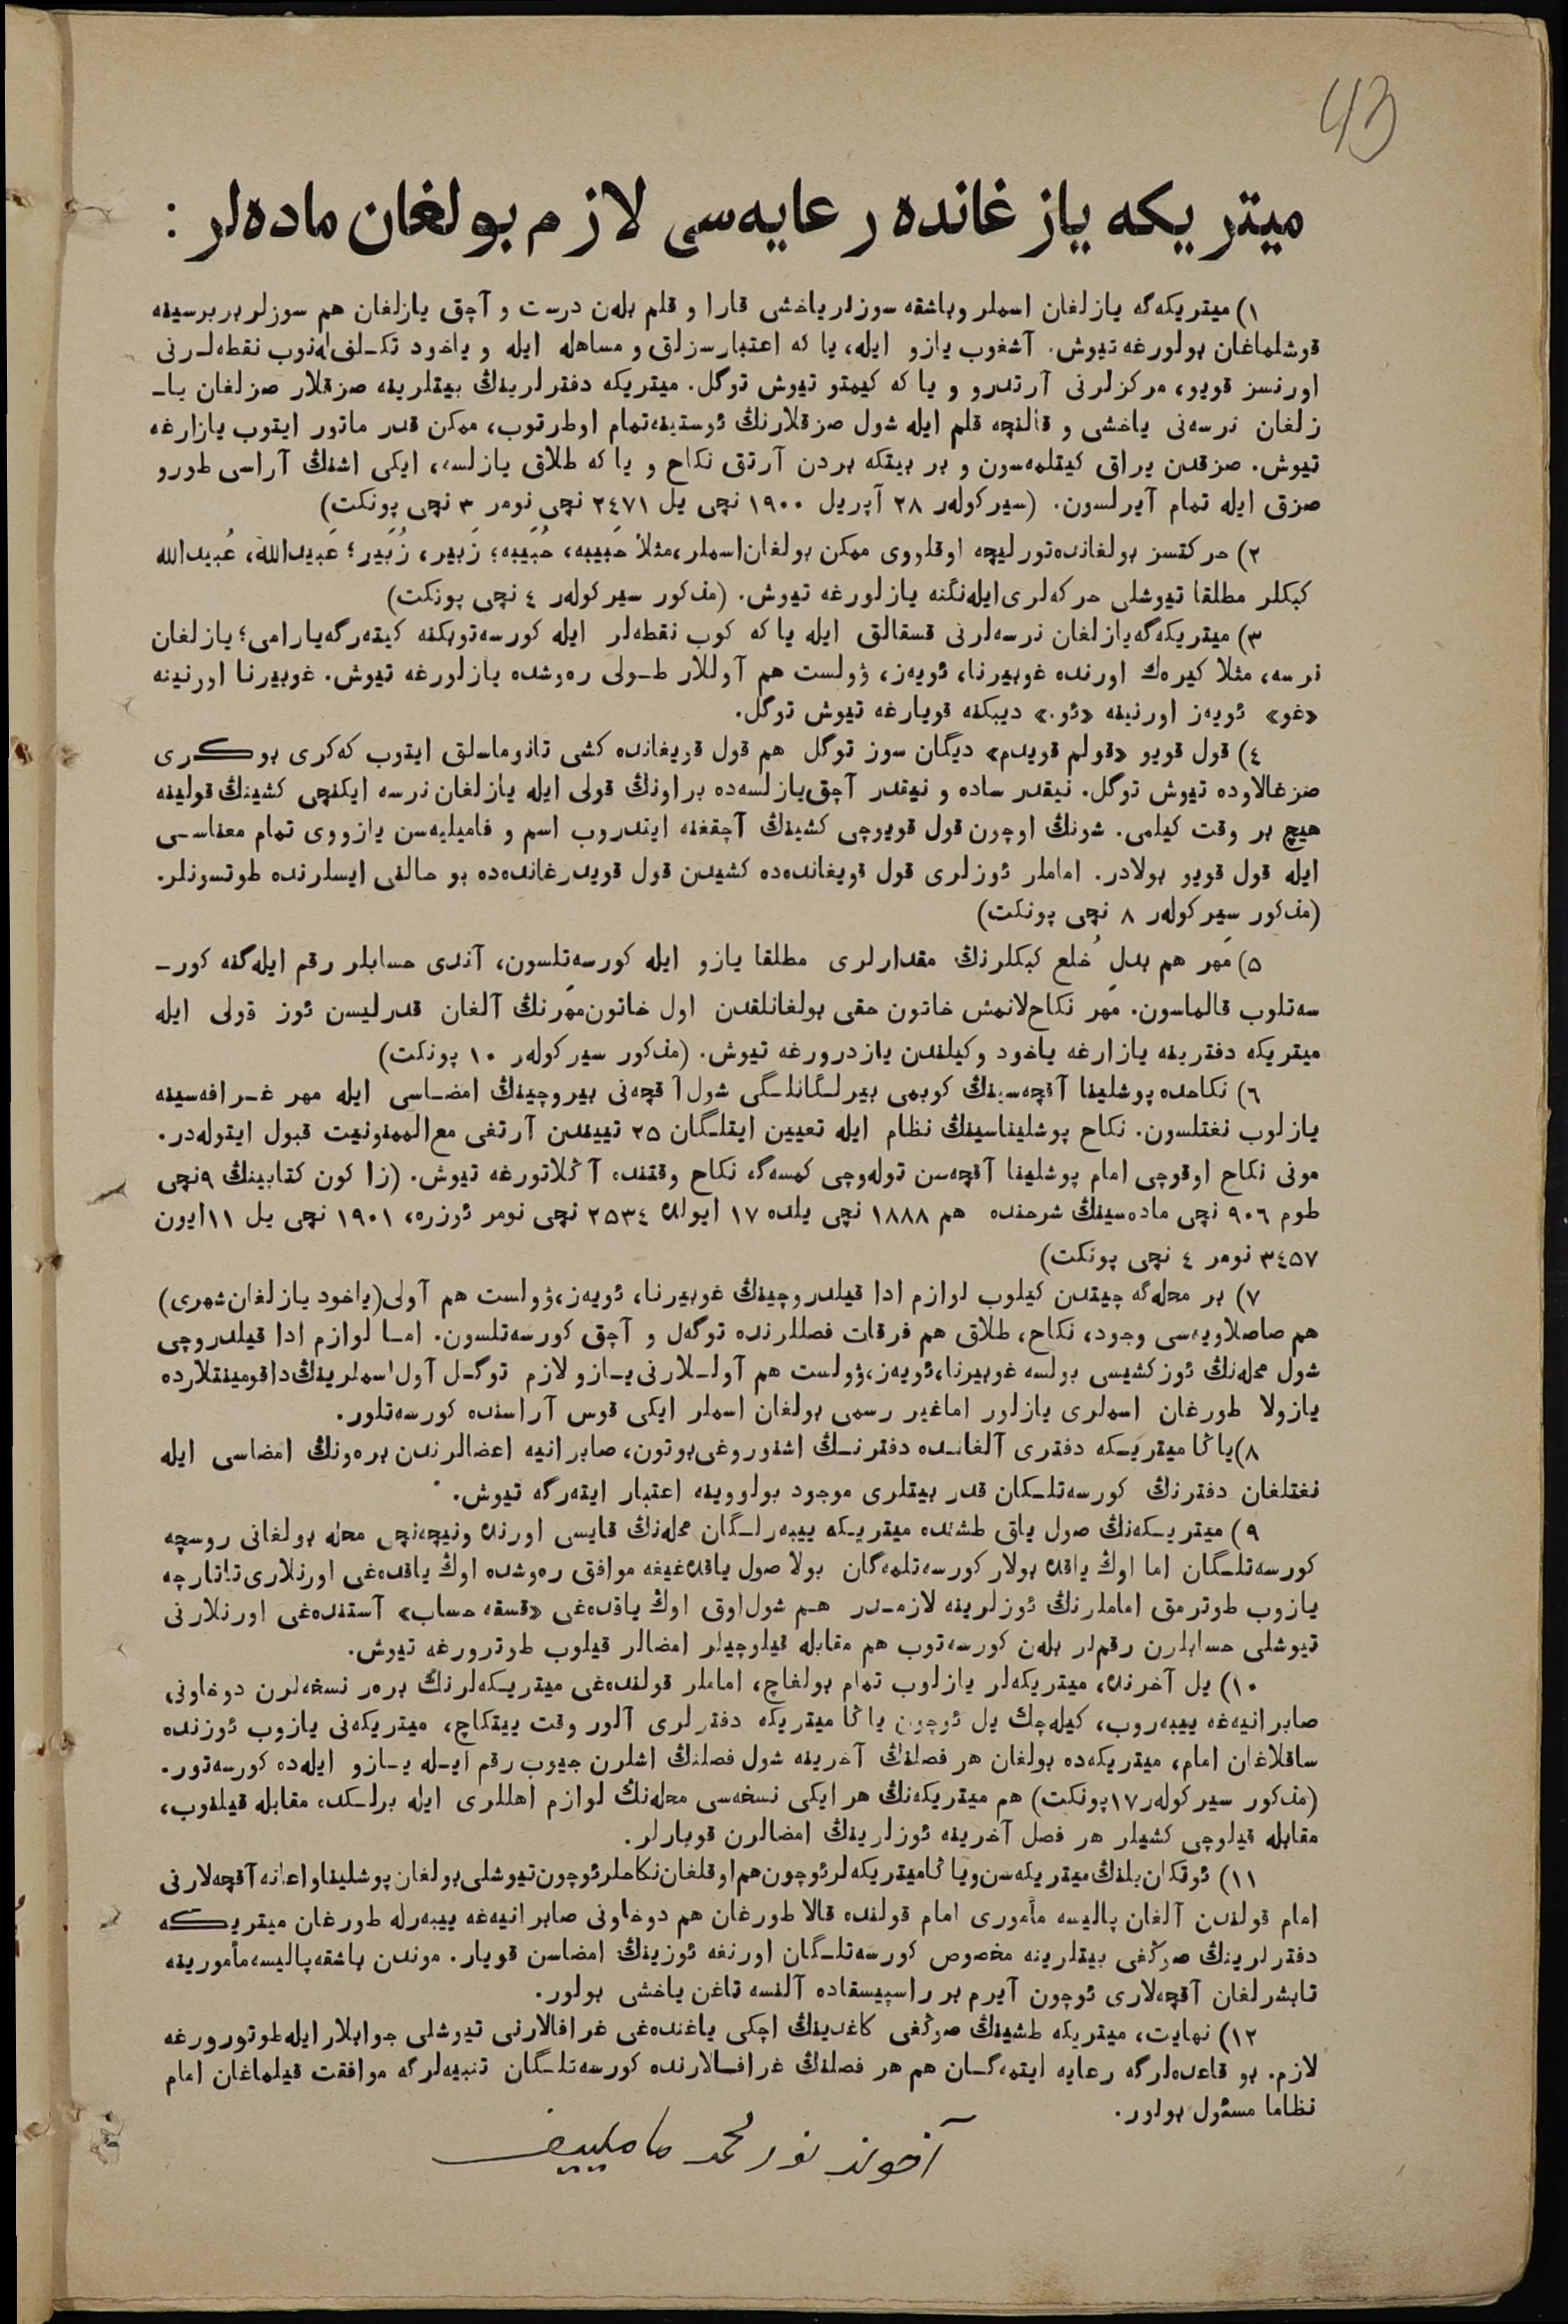 43
میتریکه یازغانده رعایه‌سی لازم بولغان ماده‌لر :
١) میتریکه‌گه یازلغان اسملر وباشقه سوزلر یاخشی قارا و قلم بله‌ن درست و آچق یازلغان هم سوزلر بربرسینه
قوشلماغان بولورغه تیوش. آشغوب یازو ایله، یا که اعتبارسزلق و مساهله ایله و یاخود تکـلف‌له‌نوب نقطه‌لـرنی
اورنسز قویو، مرکزلرنی آرتدرو و یا که کیمتو تیوش توگل. میتریکه دفترلرینڭ بیتلرینه صزقلار صزلغان یاـ
زلغان نرسه‌نی یاخشی و قالنچه قلم ایله شول صزقلارنڭ ئوستینه‌تمام اوطرتوب، ممکن قدر ماتور ایتوب یازارغه
تیوش. صزقدن یراق کیتلمه‌سون و بر بیتکه بردن آرتق نکاح و یا که طلاق یازلسه، ایکی اشنڭ آراسی طورو
صزق ایله تمام آیرلسون. (سیرکوله‌ر ٢٨ آپریل ١٩٠٠ نچی یل ٢٤٧١ نچی نومر ٣ نچی پونکت)
٢) حرکتسز بولغانده‌تورلیچه اوقلووی ممکن بولغان‌اسملر،مثلا حَبیبه، حُبَیبه؛ زَبیر، زُبَیر؛ عَبیدالله، عُبیدالله
کبکلر مطلقا تیوشلی حرکه‌لری‌ایله‌نگنه یازلورغه تیوش. (مذکور سیرکوله‌ر ٤ نچی پونکت)
٣) میتریکه‌گه‌یازلغان نرسه‌لرنی قسقالق ایله یا که کوب نقطه‌لر ایله کورسه‌توبکنه کیته‌رگه‌یارامی؛ یازلغان
نرسه، مثلا کیره‌ك اورنده غوبیرنا، ئویه‌ز، ؤولست هم آوللار طـولی ره‌وشده یازلورغه تیوش. غوبیرنا اورنینه
«غو» ئویه‌ز اورنینه «ئو.» دیبکنه قویارغه تیوش توگل.
٤) قول قویو «قولم قویدم» دیگان سوز توگل هم قول قویغانده کشی تانوماسلق ایتوب که‌کری بوکـری
صزغالاوده تیوش توگل. نیقدر ساده و نیقدر آچق‌یازلسه‌ده براونڭ قولی ایله یازلغان نرسه ایکنچی کشینڭ قولینه
هیچ بر وقت کیلمی. شونڭ اوچون قول قویوچی کشینڭ آچقغنه ایتدروب اسم و فامیلیه‌سن یازووی تمام معناسـی
ایله قول قویو بولادر. اماملر ئوزلری قول قویغانده‌ده کشیدن قول قویدرغانده‌ده بو حالنی ایسلرنده طوتسونلر.
(مذکور سیرکوله‌ر ٨ نچی پونکت)
٥) مَهر هم بدل خُلع کبکلرنڭ مقدارلری مطلقا یازو ایله کورسه‌تلسون، آندی حسابلر رقم ایله‌گنه کورـ
سه‌تلوب قالماسون. مَهر نکاح‌لانمش خاتون حقی بولغانلقدن اول خاتون‌مَهرنڭ آلغان قدرلیسن ئوز قولی ایله
میتریکه دفترینه یازارغه یاخود وکیلندن یازدرورغه تیوش. (مذکور سیرکوله‌ر ١٠ پونکت)
٦) نکاحده پوشلینا آقچه‌سینڭ کوبمی بیرلـگانلـگی شول آقچه‌نی بیروچینڭ امضـاسی ایله مهر غـرافه‌سینه
یازلوب نغتلسون. نکاح پوشلیناسینڭ نظام ایله تعیین ایتلـگان ٢٥ تییندن آرتغی مع‌الممنونیت قبول ایتوله‌در.
مونی نکاح اوقوچی امام پوشلینا آقچه‌سن توله‌وچی کمسه‌گه نکاح وقتنده آڭلاتورغه تیوش. (زاکون کتابینڭ ٩نچی
طوم ٩٠٦ نچی ماده‌سینڭ شرحنده هم ١٨٨٨ نچی یلده ١٧ ایولده ٢٥٣٤ نچی نومر ئوزره، ١٩٠١ نچی یل ١١ایون
٣٤٥٧ نومر ٤ نچی پونکت)
٧) بر محله‌گه چیتدن کیلوب لوازم ادا قیلدروچینڭ غوبیرنا، ئویه‌ز،ؤولست هم آولی(یاخود یازلغان‌شهری)
هم صاصلاویه‌سی وجود، نکاح، طلاق هم فرقات فصللرنده توگه‌ل و آچق کورسه‌تلسون. امـا لوازم ادا قیلدروچی
شول محله‌نڭ ئوزکشیسی بولسه غوبیرنا،ئویه‌ز،ؤولست هم آولـلارنی‌یـازو لازم توگـل آول اسملرینڭ‌داقومینتلارده
یازولا طورغان اسملری یازلور اماغیر رسمی بولغان اسملر ایکی قوس آراسنده کورسه‌تلور.
٨)یاڭا میتریـکه دفتری آلغانـده دفترنـڭ اشنوروغی‌بوتون، صابرانیه اعضالرندن بره‌ونڭ امضاسی ایله
نغتلغان دفترنڭ کورسه‌تلـکان قدر بیتلری موجود بولووینه اعتبار ایته‌رگه تیوش.
٩) میتریـکه‌نڭ صول یاق طشنده میتریـکه ییبه‌رلـگان محله‌نڭ قایسی اورنده ونیچه‌نچی محله بولغانی روسچه
کورسه‌تلـگان اما اوڭ یاقده بولار کورسه‌تلمه‌گان بولا صول یاقده‌غیغه موافق ره‌وشده اوڭ یاقده‌غی اورنلاری‌تاتارچه
یازوب طوترمق اماملرنڭ ئوزلرینه لازمـدر هـم شول‌اوق اوڭ یاقده‌غی «قسقه حساب» آستنده‌غی اورنلارنی
تیوشلی حسابلرن رقملر بله‌ن کورسه‌توب هم مقابله قیلوچیلر امضالر قیلوب طوترورغه تیوش.
١٠) یل آخرنده، میتریکه‌لر یازلوب تمام بولغاچ، اماملر قولنده‌غی میتریـکه‌لرنڭ بره‌ر نسخه‌لرن دوخاونی
صابرانیه‌غه ییبه‌روب، کیله‌چك یل ئوچون یاڭا میتریکه دفترلری آلور وقت ییتکاچ، میتریکه‌نی یازوب ئوزنده
ساقلاغان امام، میتریکه‌ده بولغان هر فصلنڭ آخرینه شول فصلنڭ اشلرن جیوب رقم ایـله یـازو ایله‌ده کورسه‌تور.
(مذکور سیرکوله‌ر١٧پونکت) هم میتریکه‌نڭ هر ایکی نسخه‌سی محله‌نڭ لوازم اهللری ایله برلـکده مقابله قیلنوب،
مقابله قیلوچی کشیلر هر فصل آخرینه ئوزلرینڭ امضالرن قویارلر.
١١) ئوتکان‌یلنڭ‌میتریکه‌سن‌ویاڭامیتریکه‌لرئوچون‌هم‌اوقلغان‌نکاحلرئوچون‌تیوشلی‌بولغان‌پوشلیناواعانه آقچه‌لارنی
امام قولندن آلغان پالیسه مأموری امام قولنده قالا طورغان هم دوخاونی صابرانیه‌غه ییبه‌رله طورغان میتریـکه
دفترلرینڭ صوڭغی بیتلرینه مخصوص کورسه‌تلـگان اورنغه ئوزینڭ امضاسن قویار. موندن باشقه‌پالیسه‌مأمورینه
تابشرلغان آقچه‌لاری ئوچون آیرم بر راسپیسقاده آلنسه تاغن یاخشی بولور.
١٢) نهایت، میتریکه طشینڭ صوڭغی کاغدینڭ اچکی یاغنده‌غی غرافالارنی تیوشلی جوابلارایله‌طوتورورغه
لازم. بو قاعده‌لرگه رعایه ایتمه‌گـان هم هر فصلنڭ غرافـالارنده کورسه‌تلـگان تنبیه‌لرگه موافقت قیلماغان امام
نظاما مسئول بولور.
آخوند نورمحمد مامليیف